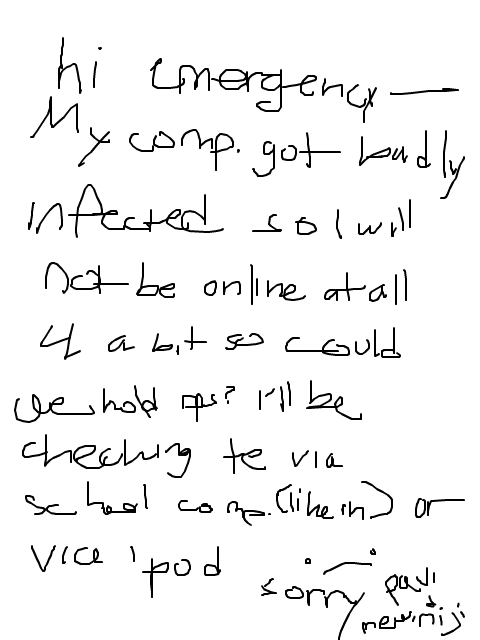 hi emergency —
My comp. got badly
infected so I will
not be online at all
4 a bit so could
we hold ops? I'll be
checking te via
school comp. (like in) or
vice ipod
sorry